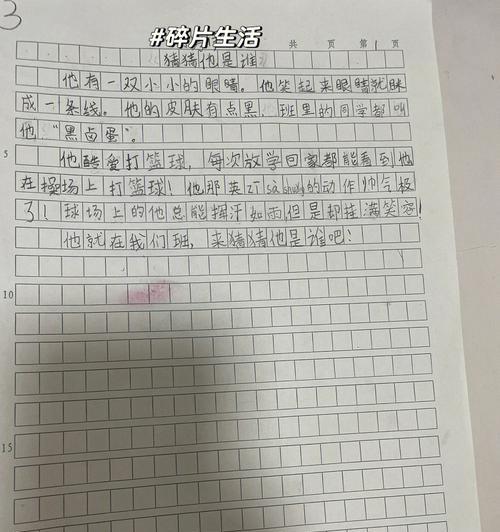 3
#碎片生活
共 页 第 1 页
猜猜他是谁
他有一双小小的眼睛。他笑起来眼睛就眯
成一条线。他的皮肤有点黑，班里的同学都叫
他“黑卤蛋”。
5
他酷爱打篮球，每次放学回家都能看到他
在操场上打篮球！他那英zī sà shuǎng的动作帅气极
了！球场上的他总能挥汗如雨但是却挂满笑容！
他就在我们班，来猜猜他是谁吧！
10
15